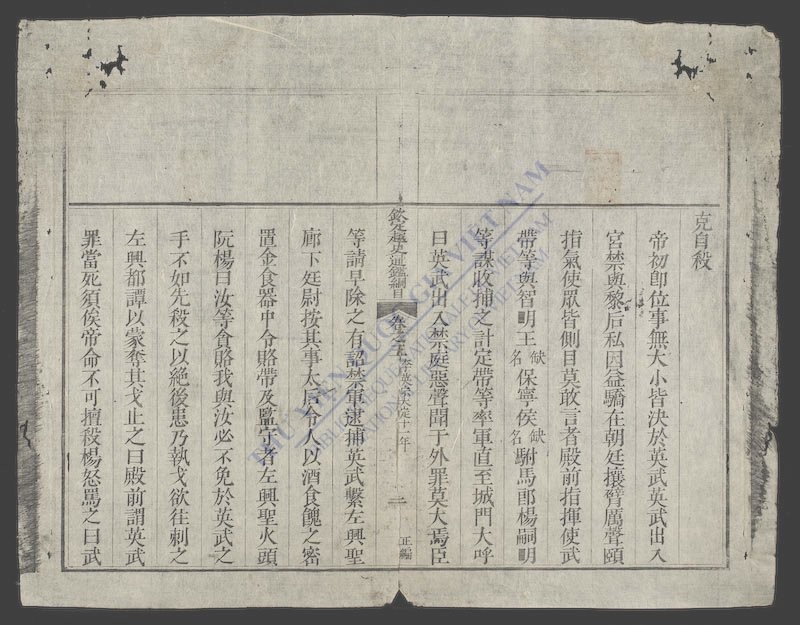 克自殺
帝初卽位事無大小皆決於英武英武出入
宮禁與黎后私因益驕在朝廷攘臂厲聲頤
指氣使眾皆側目莫敢言者殿前指揮使武
帶等與智明王缺名保寧侯缺名駙馬郎楊嗣明
等謀收捕之計定帶等率軍直至城門大呼
曰英武出入禁庭惡聲聞于外罪莫大焉臣
欽定越史通鑑綱目 卷之五 李英宗大定十一年 二 正編
等請早除之有詔禁軍逮捕英武繫左興聖
廊下廷尉按其事太后令人以酒食餽之密
置金食器中令賂帶及監守者左興聖火頭
阮楊曰汝等食賂我與汝必不免於英武之
手不如先殺之以絕後患乃執戈欲往刺之
左興都譚以蒙奪其戈止之曰殿前謂英武
罪當死須俟帝命不可擅殺楊怒罵之曰武
THƯ VIỆN QUỐC GIA VIỆT NAM
BIBLIOTHÈQUE NATIONALE DU VIETNAM
NATIONAL LIBRARY OF VIETNAM